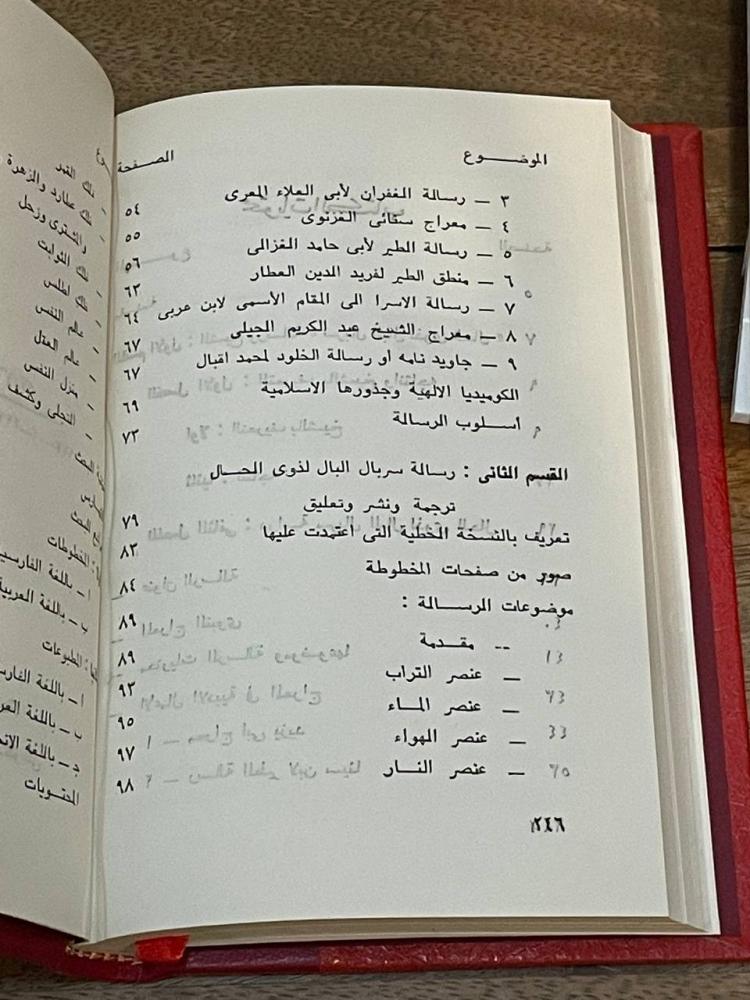 الموضـــوع الصــفحة
٣ ــ رسالة الغفران لأبى العلاء المعرى ٥٤
٤ ــ معراج سنائى الغزنوى ٥٥
٥ ــ رسالة الطير لأبى حامد الغزالى ٥٦
٦ ــ منطق الطير لفريد الدين العطار ٦٣
٧ ــ رسالة الاسرا الى المقام الأسمى لابن عربى ٦٤
٨ ــ معراج الشيخ عبد الكريم الجيلى ٦٧
٩ ــ جاويد نامه أو رسالة الخلود لمحمد اقبال ٦٧
الكوميديا الالهية وجذورها الاسلامية ٦٩
أسلوب الرسالة ٧٣
القسم الثانى : رسالة سربال البال لذوى الحــال
ترجمة ونشر وتعليق ٧٩
تعريف بالنسخة الخطية التى اعتمدت عليها ٨٣
صور من صفحات المخطوطة ٨٤
موضوعات الرســالة : ٨٩
-- مقــدمة ٨٩
ــ عنصر التراب ٩٣
ــ عنصر المــاء ٩٥
ــ عنصر الهواء ٩٧
ــ عنصر النــار ٩٨
٢٤٦
ــ فلك القمر
ــ فلك عطارد والزهرة
والمشترى وزحل
ــ فلك الثوابت
ــ فلك اطلس
ــ عالم النفس
ــ عالم العقل
ــ منزل النفس
ــ التجلى وكشف
المخطوطات
أ ــ باللغة الفارسية
ب ــ باللغة العربية
المطبوعات
أ ــ باللغة
ب ــ باللغة
جـ ــ باللغة
المحتــويات